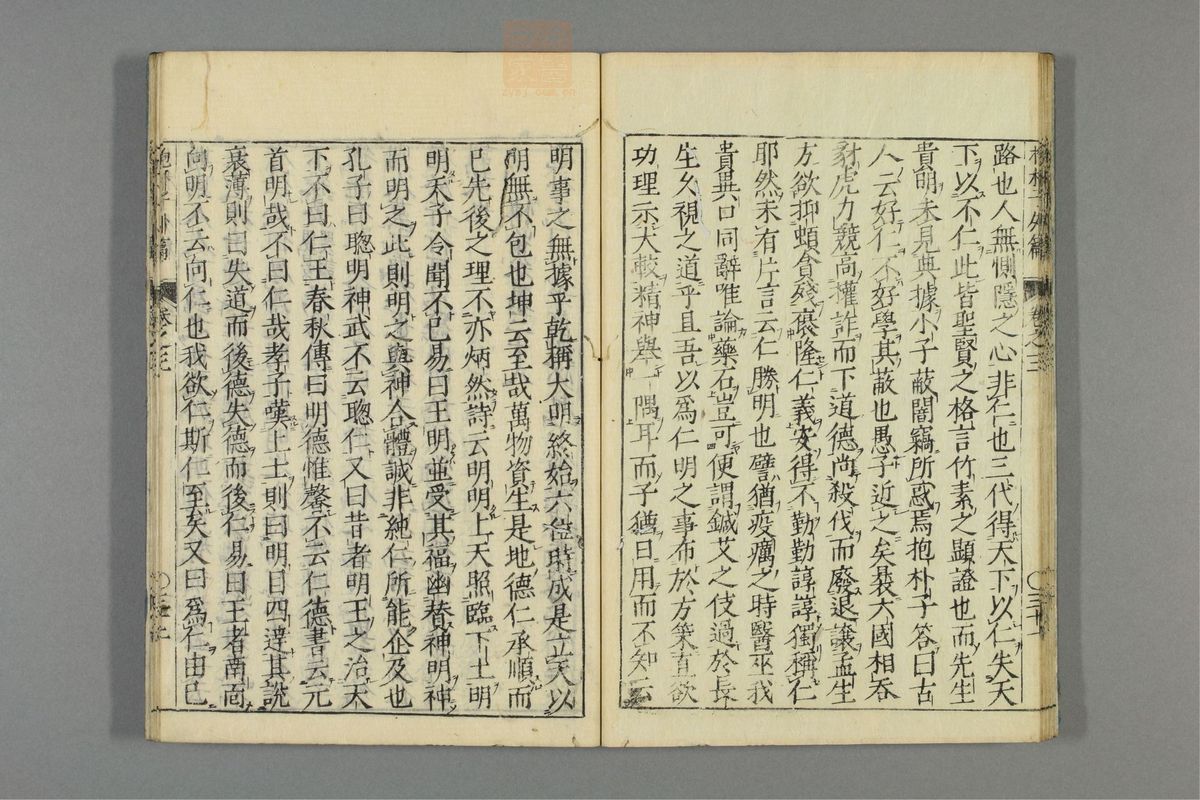 路也人無惻隱之心非仁也三代得天下以仁失天
下以不仁此皆聖賢之格言竹素之顯證也而先生
貴明未見典據小子蔽闇竊所惑焉抱朴子荅曰古
人云好仁不好學其蔽也愚子近之矣曩六國相吞
豺虎力競高權詐而下道德尚殺伐而廢退讓孟生
方欲抑頓貪殘褒隆仁義安得不勤勤諄諄獨稱仁
耶然未有片言云仁勝明也譬猶疫癘之時醫巫我
貴異口同辭唯論藥石豈可便謂鍼艾之伎過於長
生久視之道乎且吾以爲仁明之事布於方策直欲
功理示大較精神舉一隅耳而子猶日用而不知云
明事之無據乎乾稱大明終始六位時成是立天以
明無不包也坤云至哉萬物資生是地德仁承順而
已先後之理不亦炳然詩云明明上天照臨下土明
明天子令聞不已易曰王明並受其福幽賛神明神
而明之此則明之與神合體誠非純仁所能企及也
孔子曰聰明神武不云聰仁又曰昔者明王之治天
下不曰仁王春秋傳曰明德惟馨不云仁德書云元
首明哉不曰仁哉孝子嘆上士則曰明目四達其說
衰薄則曰失道而後德失德而後仁易曰王者南面
向明不云向仁也我欲仁斯仁至矣又曰爲仁由己
卷之三
卷之三